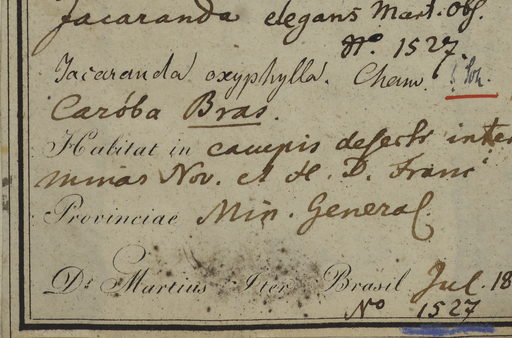 Jacaranda elegans Mart. Obs.
No. 1527
Jacaranda oxyphylla. Cham.
Caróba Bras.
Habitat in campis desertis inter
minas Nov. et H. D. Franc
Provinciae Min. General.
Dr Martius Iter Brasil Jul. 18
No 1527